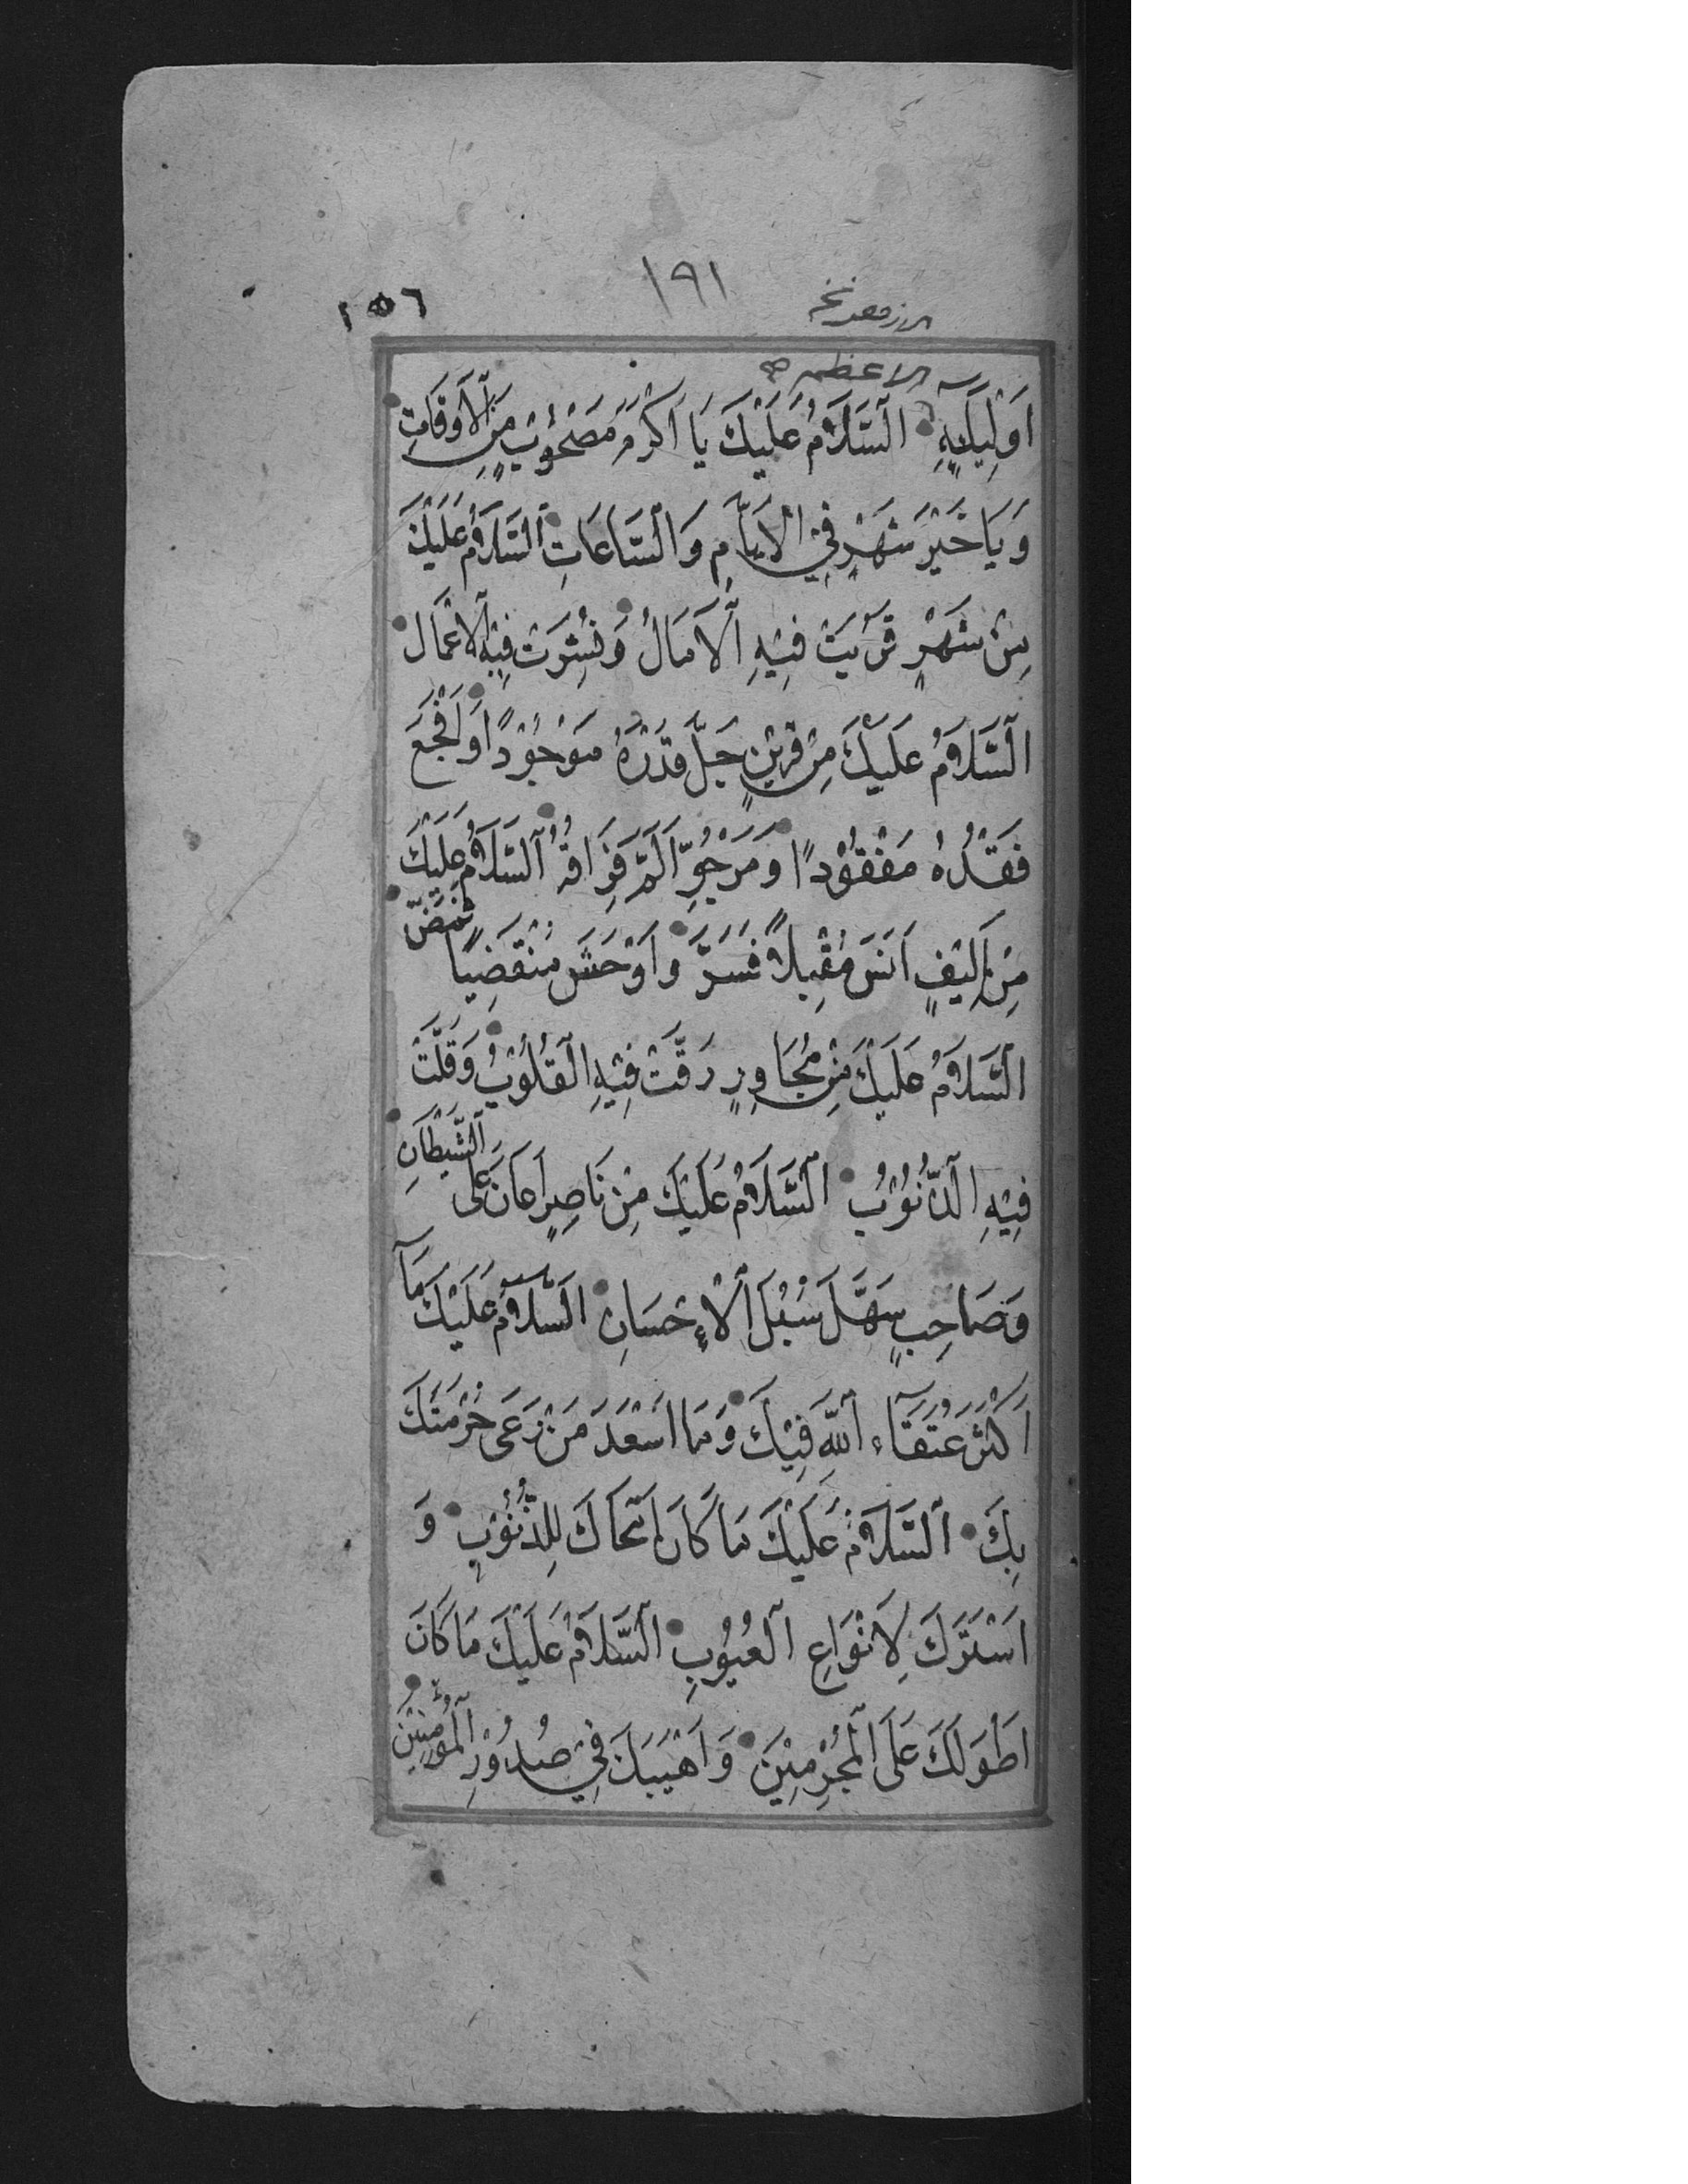 ١٩١
١٥٦
الاعظم
اَوْلِيَآئِهِ اَلسَّلَامُ عَلَيْكَ يَا اَكْرَمَ مَصْحُوْبٍ مِنَ الْاَوْقَاتِ
وَيَا خَيْرَ شَهْرٍ فِي الْاَيَّامِ وَالسَّاعَاتِ اَلسَّلَامُ عَلَيْكَ
مِنْ شَهْرٍ قَرُبَتْ فِيْهِ الْاٰمَالُ وَنُشِرَتْ فِيْهِ الْاَعْمَالُ
اَلسَّلَامُ عَلَيْكَ مِنْ قَرِيْنٍ جَلَّ قَدْرُهُ مَوْجُوْدًا وَاَفْجَعَ
فَقْدُهُ مَفْقُوْدًا وَمَرْجُوٍّ اٰلَمَ فِرَاقُهُ اَلسَّلَامُ عَلَيْكَ
مِنْ اَلِيْفٍ اٰنَسَ مُقْبِلًا فَسَرَّ وَاَوْحَشَ مُنْقَضِيًا فَمَضَّ
اَلسَّلَامُ عَلَيْكَ مِنْ مُجَاوِرٍ رَقَّتْ فِيْهِ الْقُلُوْبُ وَقَلَّتْ
فِيْهِ الذُّنُوْبُ اَلسَّلَامُ عَلَيْكَ مِنْ نَاصِرٍ اَعَانَ عَلَى الشَّيْطَانِ
وَصَاحِبٍ سَهَّلَ سُبُلَ الْاِحْسَانِ اَلسَّلَامُ عَلَيْكَ مَآ
اَكْثَرَ عُتَقَآءَ اللّٰهِ فِيْكَ وَمَا اَسْعَدَ مَنْ رَعَى حُرْمَتَكَ
بِكَ اَلسَّلَامُ عَلَيْكَ مَا كَانَ اَمْحَاكَ لِلذُّنُوْبِ وَ
اَسْتَرَكَ لِاَنْوَاعِ الْعُيُوْبِ اَلسَّلَامُ عَلَيْكَ مَا كَانَ
اَطْوَلَكَ عَلَى الْمُجْرِمِيْنَ وَاَهْيَبَكَ فِيْ صُدُوْرِ الْمُؤْمِنِيْنَ